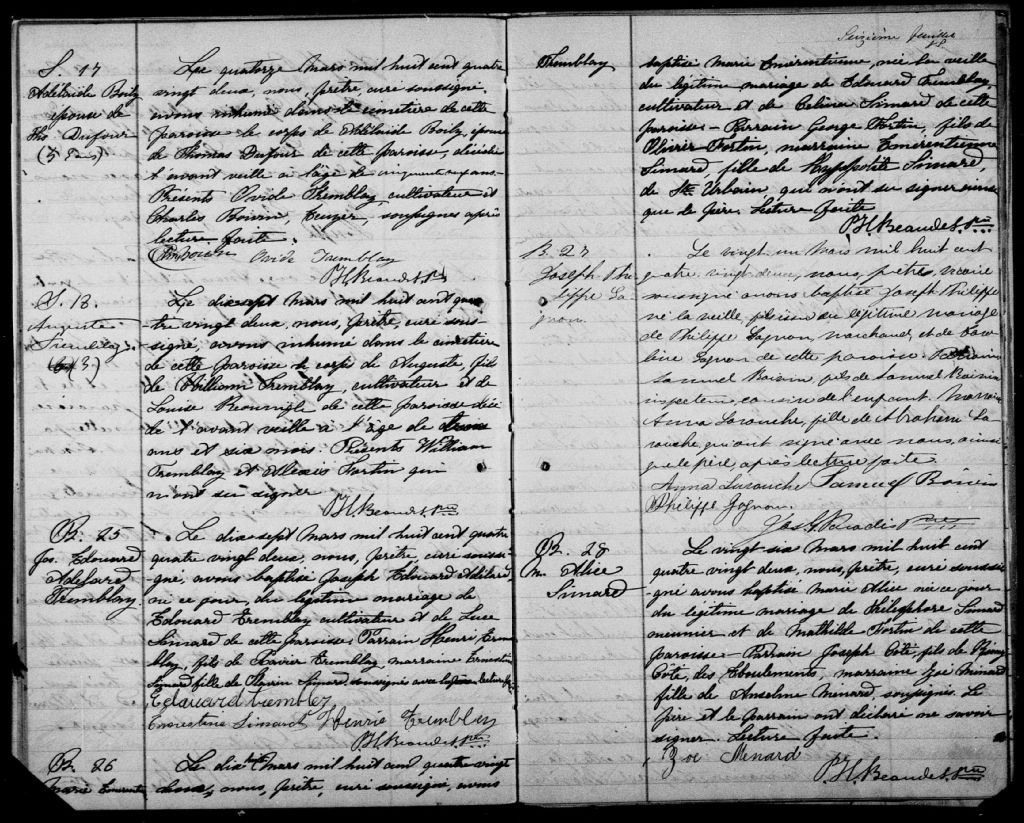 S. 17
Adelaide Boily
épouse de
Ths. Dufour
Le quatorze Mars mil huit cent quatre
vingt deux, nous, prêtre, curé soussigné,
avons inhumé dans le cimetière de cette
paroisse le corps de Adélaide Boily, épouse
de Thomas Dufour de cette paroisse, décédée
l'avant veille à l'âge de cinquante sept ans.
Présents Ovide Tremblay, cultivateur et
Charles Boivin, soussignés après
lecture faite.
Chs Boivin Ovide Tremblay
P.H. Beaudet Ptre
S. 18.
Auguste
Tremblay
(3.)
Le dix sept Mars mil huit cent qua-
tre vingt deux, nous, prêtre, curé sous-
signé, avons inhumé dans le cimetière
de cette paroisse le corps de Auguste, fils
de William Tremblay, cultivateur et de
Louise de cette paroisse décé-
dé l'avant veille à l'âge de
ans et six mois. Présents William
Tremblay et Alexis Fortin qui
n'ont su signer
P.H. Beaudet Ptre
B. 25
Jos. Edouard
Adelard
Tremblay
Le dix sept Mars mil huit cent quatre
quatre vingt deux, nous, prêtre, curé soussi-
gné, avons baptisé Joseph Edouard Adélard,
né ce jour, du légitime mariage de
Edouard Tremblay cultivateur et de Luce
Simard de cette paroisse. Parrain Henri Trem-
blay, fils de Xavier Tremblay, marraine Ernestine
Simard fille de Simard, soussignés avec le père lecture faite
Edouard tremblay
Ernestine Simard Henrie Tremblay
P.H. Beaudet Ptre
B. 26
Marie Emerentienne
Le dix Mars mil huit cent quatre vingt
deux, nous, prêtre, curé soussigné, avons
Seizième feuillet
Tremblay
baptisé Marie Emérentienne, née la veille
du légitime mariage de Edouard Tremblay,
cultivateur et de Célina Simard de cette
paroisse - Parrain George Fortin, fils de
Olivier Fortin, marraine Emérentienne
Simard, fille de Hyppolite Simard,
de Ste Urbain qui n'ont su signer ainsi
que le père. Lecture faite
P.H. Beaudet Ptre
B. 27
Joseph Phi-
lippe Ga-
gnon.
Le vingt un Mars mil huit cent
quatre vingt deux, nous, prêtre, vicaire
soussigné avons baptisé Joseph Philippe
né la veille, fils du légitime mariage
de Philippe Gagnon, marchand, et de
Gagnon de cette paroisse. Parrain
Samuel Boivin, fils de Samuel Boivin
inspecteur, cousin de l'enfant. Marraine
Anna Larouche, fille de Abraham La-
rouche, qui ont signé avec nous, ainsi
que le père, après lecture faite
Anna Larouche Samuel Boivin
Philippe Gagnon.
Jos. Paradis Ptre
B. 28
M. Alice
Simard
Le vingt six Mars mil huit cent
quatre vingt deux, nous, prêtre, curé soussi-
gné avons baptisé Marie Alice née ce jour
du légitime mariage de Théléphore Simard
meunier et de Mathilde Fortin de cette
paroisse - Parrain Joseph Coté, fils de
Coté, des Eboulements, marraine Zoé Ménard
fille de Anselme Menard, soussignés. Le
père et le parrain ont déclaré ne savoir
signer. Lecture faite.
Zoé Ménard
P.H. Beaudet Ptre